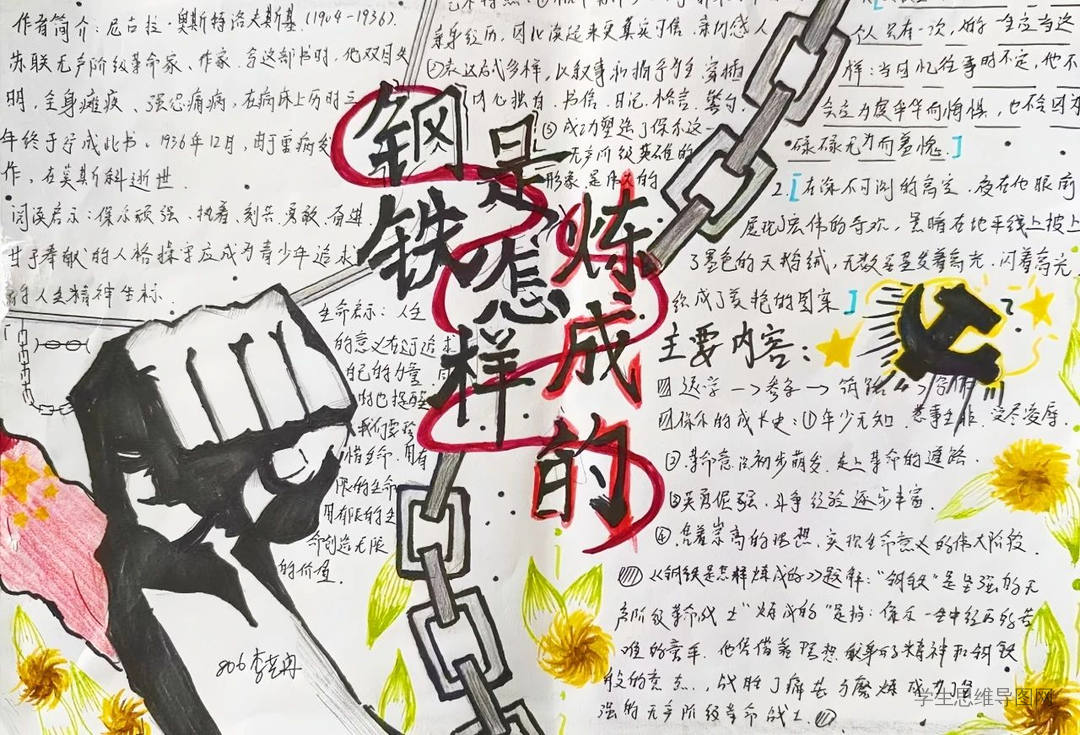 作者简介：尼古拉·奥斯特洛夫斯基（1904-1936）.
苏联无产阶级革命家、作家.写这部书时，他双目失
明，全身瘫痪，强忍痛病，在病床上历时三
年终于写成此书。1936年12月，由于重病发
作，在莫斯科逝世.
阅读启示：保尔顽强、执着、刻苦、勇敢、奋进
甘于奉献的人格操守应成为青少年追求
的人生精神坐标.
生命启示：人生
的意义在于追求
自己的力量.
我们要珍
惜生命.用有
限的生命
用有限的生
命创造无限
的价值.
钢铁是怎样炼成的
亲身经历，因此读起来更真实可信，亲切感人
②表达方式多样，以叙事和描写为主，穿插
内心独白、书信、日记、格言、警句.
③成功塑造了保尔这一
无产阶级英雄的
形象，是伟大的
人只有一次，人的一生应当这
样：当回忆往事时不定，他不
会应为虚度年华而悔恨，也不会因为
碌碌无为而羞愧.]
2.[在深不可测的高空，夜在他眼前
展现了宏伟的奇观，黑暗在地平线上披上
了墨色的天鹅绒，无数星星发着亮光，闪着亮光
织成了美艳的图案]
主要内容：
退学—>参军—>筑路—>
保尔的成长史：①年少无知，惹事生非，受尽凌辱.
②革命意识初步萌发，走上革命的道路.
③英勇倔强，斗争经验逐步丰富.
④凭着崇高的理想，实现生命意义的伟大阶段.
《钢铁是怎样炼成的》题解：“钢铁”是坚强的无
产阶级革命战士“炼成的”是指：保尔一生中经历的苦
难的竞争，他凭借着理想 献身的精神和钢铁
般的意志..，战胜了病苦与磨炼成为了坚
强的无产阶级革命战士.
806 李
学生思维导图网